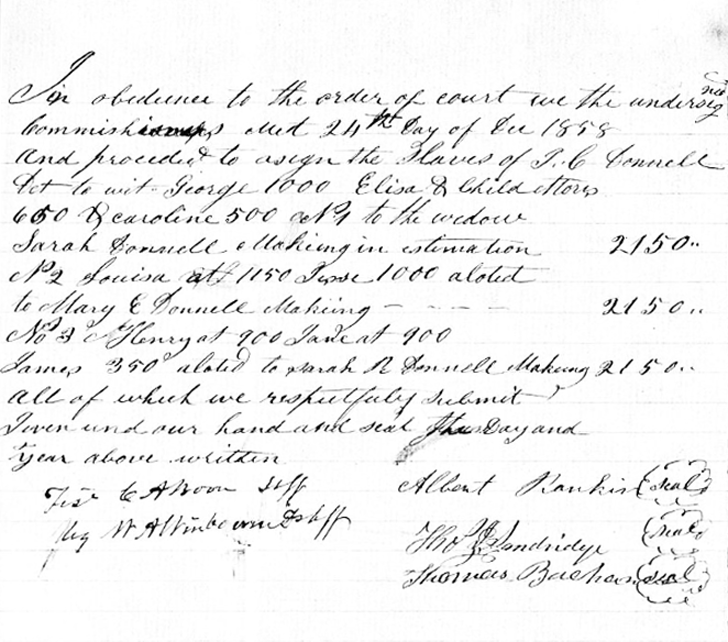 In obedience to the order of court we the undersig
ned
Commishioners Met 24th Day of Dec 1858
And proceded to asign the Slaves of J. C Donnell
Dct to wit George 1000 Elisa & Child
650 & caroline 500 No 1 to the widow
Sarah Donnell Makiing in estimation 2150..
No 2 Louisa at 1150 Jesse 1000 aloted
to Mary E Donnell Makiing - - - - 2150..
No 3 Henry at 900 Jane at 900
James 350 aloted to Sarah R Donnell Makiing 2150..
All of which we respectfuly submit
Given und our hand and seal this Day and
Year above written
C A Boon Shff
Albert Rankin (seal)
Tho (seal)
Thomas (seal)